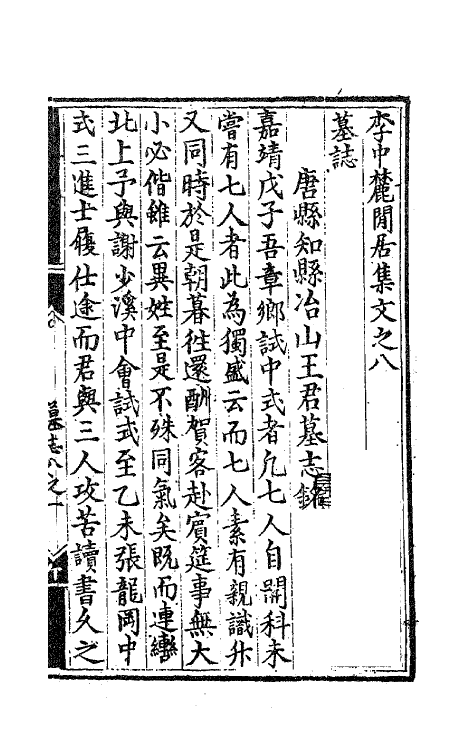 李中麓閒居集文之八
墓誌
唐縣知縣冶山王君墓志銘
嘉靖戊子吾章鄉試中式者凡七人自開科未
嘗有七人者此為獨盛云而七人素有親識汴
又同時於是朝暮徃還酬賀客赴賓筵事無大
小必偕雖云異姓至是不殊同氣矣既而連轡
北上予與謝少溪中會試式至乙未張龍岡中
式三進士履仕途而君與三人攻苦讀書久之
墓志八之一